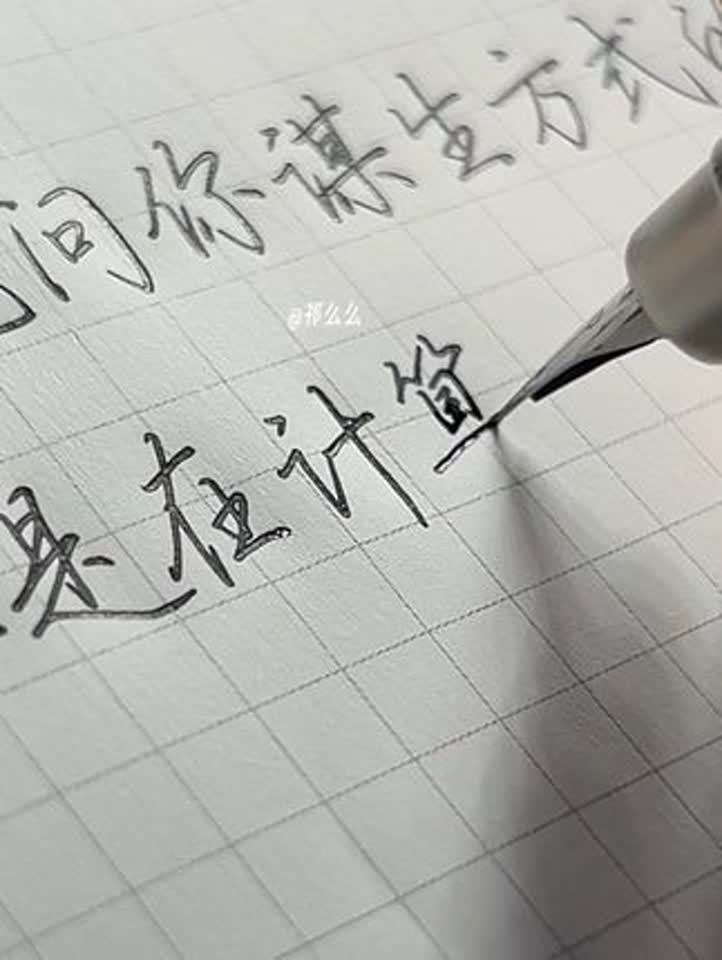 问你谋生方式
@祁么么
是在计算